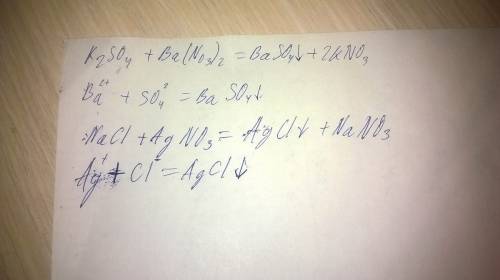 K₂SO₄ + Ba(NO₃)₂ = BaSO₄↓ + 2KNO₃
Ba²⁺ + SO₄² = BaSO₄↓
NaCl + AgNO₃ = AgCl↓ + NaNO₃
Ag⁺ + Cl⁻ = AgCl↓